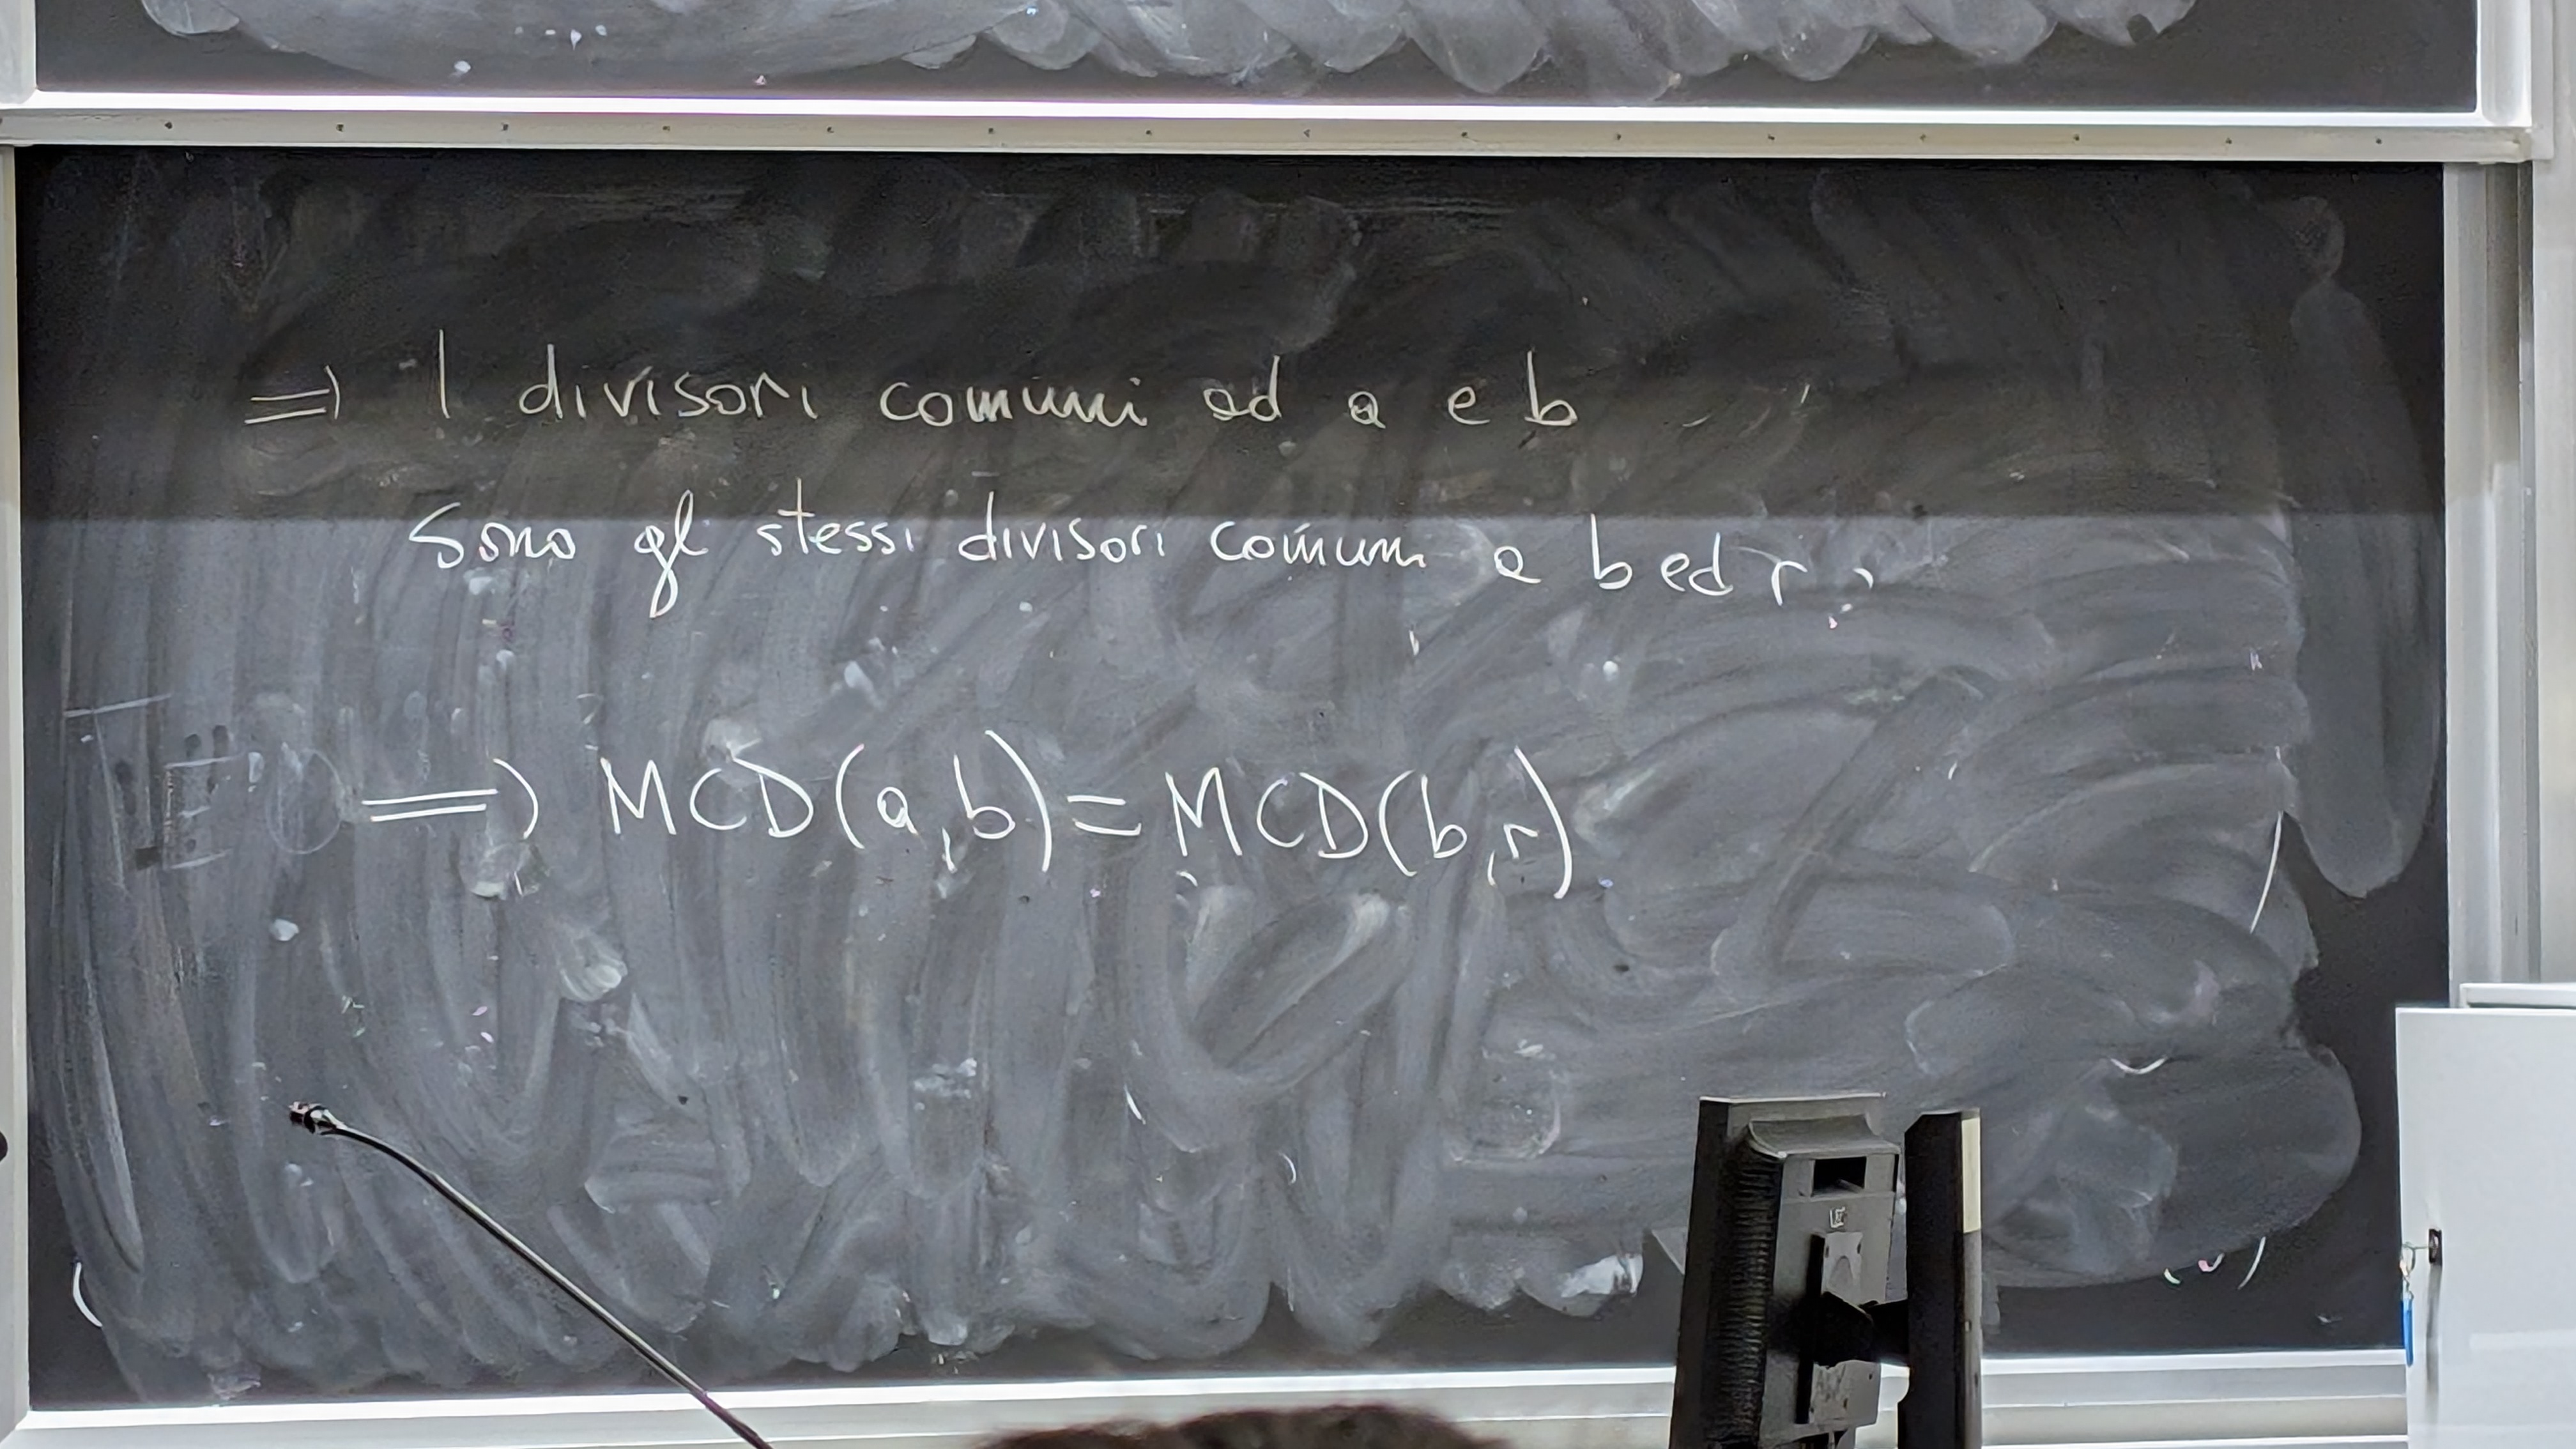 ⇒ I divisori comuni ad a e b
Sono gl stessi divisori comuni a b ed r.
⇒ MCD(a,b) = MCD(b,r)